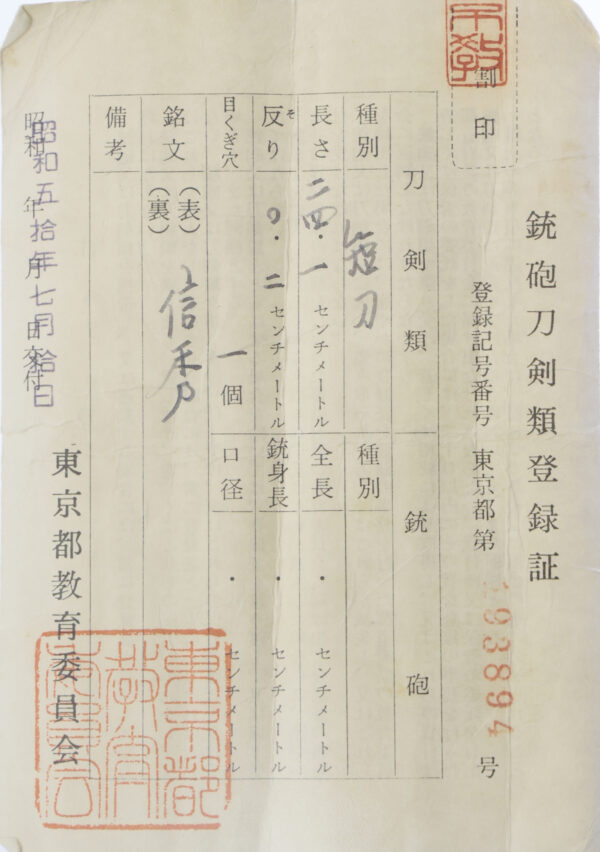 銃砲刀剣類登録証
登録記号番号 東京都第 193894 号
割印
刀剣類
種別 短刀
長さ 二四・一 センチメートル
反り 〇・二 センチメートル
そ
目くぎ穴 一個
銘文 (表) 信秀
(裏)
備考
銃砲
種別
全長 ・ センチメートル
銃身長 ・ センチメートル
口径 ・ センチメートル
昭和 年 月 日交付
昭和五拾年七月拾日
東京都教育委員会
東京都
教育
委員会